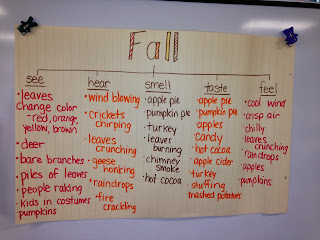 Fall
see
• leaves
change color
- red, orange,
yellow, brown
• deer
• bare branches
• piles of leaves
• people raking
• kids in costumes
• pumpkins
hear
• wind blowing
• crickets
chirping
• leaves
crunching
• geese
honking
• raindrops
• fire
crackling
smell
• apple pie
• pumpkin pie
• turkey
• leaves
burning
• chimney
smoke
• hot cocoa
taste
• apple pie
• pumpkin pie
• apples
• candy
• hot cocoa
• apple cider
• turkey
• stuffing
mashed potatoes
feel
• cool wind
• crisp air
• chilly
• leaves
crunching
• raindrops
• apples
• pumpkins